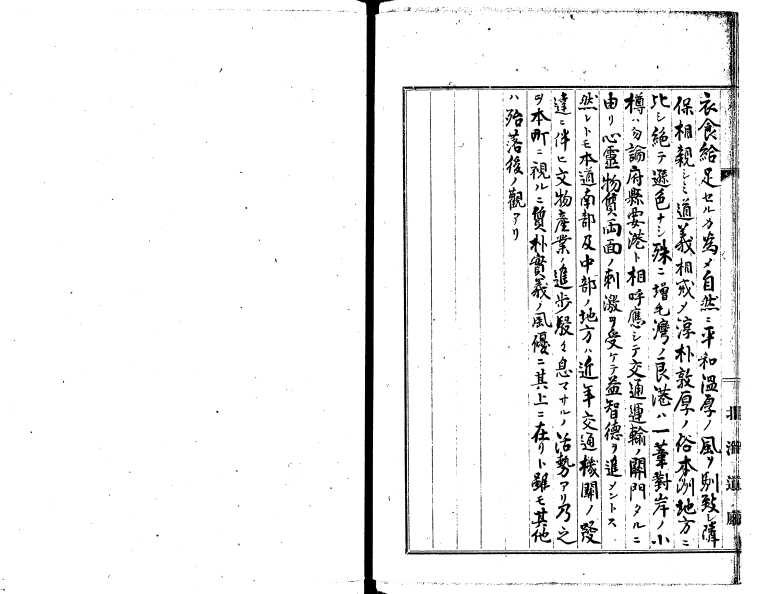 衣食給足セルカ為メ自然ニ平和温厚ノ風ヲ馴致シ隣
保相親シミ道義相戒メ淳朴敦厚ノ俗本洲地方ニ
比シ絶テ遜色ナシ殊ニ増毛湾ノ良港ハ一葦對岸ノ小
樽ハ勿論府縣要港ト相呼應シテ交通運輸ノ關門タルニ
由リ心靈物質両面ノ刺激ヲ受ケテ益智徳ヲ進メントス
然レトモ本道南部及中部ノ地方ハ近年交通機關ノ發
達ニ伴ヒ文物産業ノ進歩駸々息マサルノ活勢アリ乃之
ヲ本町ニ視ルニ質朴實義ノ風優ニ其上ニ在リト雖モ其他
ハ殆落後ノ觀アリ
北海道廳